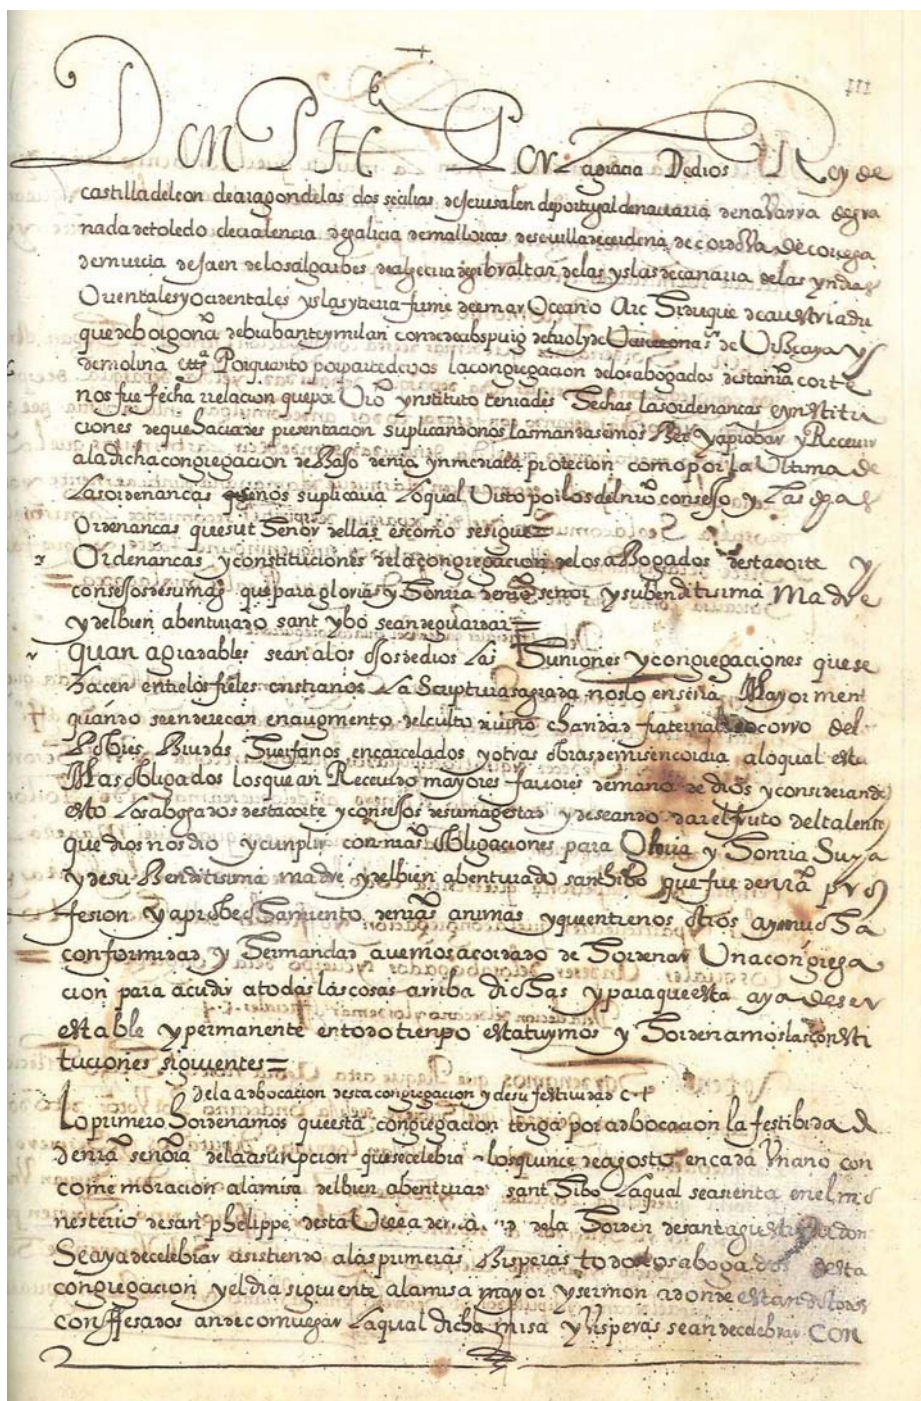 Don Ph Por la gracia De dios Rey de
castilla de leon de aragon de las dos secilias de Jerusalen de portugal de navarra de gra
nada de toledo de valencia de galicia de mallorcas de sevilla de cerdena de cordova de corcega
de murcia de Jaen de los algarbes de algecira de gibraltar de las yslas de canaria de las yndias
Orientales y ocidentales yslas y tierra firme del mar Oceano Archiduque de austria du
que de borgona de brabante y milan conde de abspurg de tirol y de Varcelona sr de Vizcaya y
de molina etta Por quanto por parte de vos la congregacion de los abogados desta nra corte
nos fue fecha rrelacion que por Vro ynstituto teniades hechas las ordenancas e ynstitu
ciones de que haciades presentacion suplicandonos las mandasemos Ber y aprobar y Recevir
a la dicha congregacion de Baxo de nra ynmediata protecion como por la Ultima de
Las ordenancas se nos suplicava Lo qual Visto por los del nro conssejo y Las
Ordenancas que su thenor dellas es como se sigue =
Ordenancas y constituciones de la congregacion de los aBogados desta corte y
consejos de su magd que para gloria y honrra de nro señor y su benditisima Madre
y del bien abenturado sant ybo se an de guardar =
Quan agradables sean a los ojos de dios Las huniones y congregaciones que se
hacen entre los fieles cristianos La Scriptura sagrada nos lo enseña Mayormen
quando se enderecan en augmento del culto divino charidad fraternal socorro del
Pobres Biudas huerfanos encarcelados y otras obras de misericordia a lo qual esta
Mas obligados los que an Recevido mayores favores de mano de dios y considerando
esto Los abogados desta corte y conssejos de su magestad y deseando dar el fruto del talento
que dios nos dio y cunplir con nras obligaciones para gloria y honrra Suya
y de su Benditisima madre y del bien abenturado sant hibo que fue de nra pro
fesion y aprobechamiento de nras animas y que entre nos otros aya mucha
conformidad y hermandad avemos acordado de hordenar Una congrega
cion para acudir a todas las cosas arriba dichas y para que esta aya de ser
estable y permanente en todo tienpo estatuymos y hordenamos las consti
tuciones siguientes =
De la adbocacion desta congregacion y de su festividad
Lo primero hordenamos que esta congregacion tenga por adbocacion la festibidad
de nra señora de la asunpcion que se celebra a los quince de agosto en cada Un ano con
comemoracion a la misa del bien abenturado sant hibo La qual se asienta en el mo
nesterio de san phelippe desta Villa de de la horden de sant agustin donde
Se aya de celebrar asistiendo a las primeras Bisperas todos los abogados desta
congregacion y el dia siguiente a la misa mayor y sermon adonde estando todos
conffesados an de comulgar La qual dicha misa y Visperas se an de celebrar con